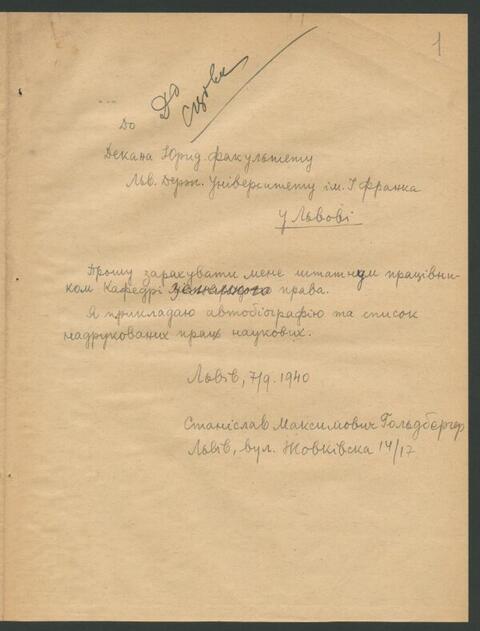 1
До
До
Декана Юрид. факультету
Льв. Держ. Університету ім. І Франка
у Львові
Прошу зарахувати мене штатним працівни-
ком Кафедрі права.
Я прикладаю автобіографію та список
надрукованих праць наукових.
Львів, 7/9. 1940
Станіслав Максимович Гольдбергер
Львів, вул. Жовківска 14/17